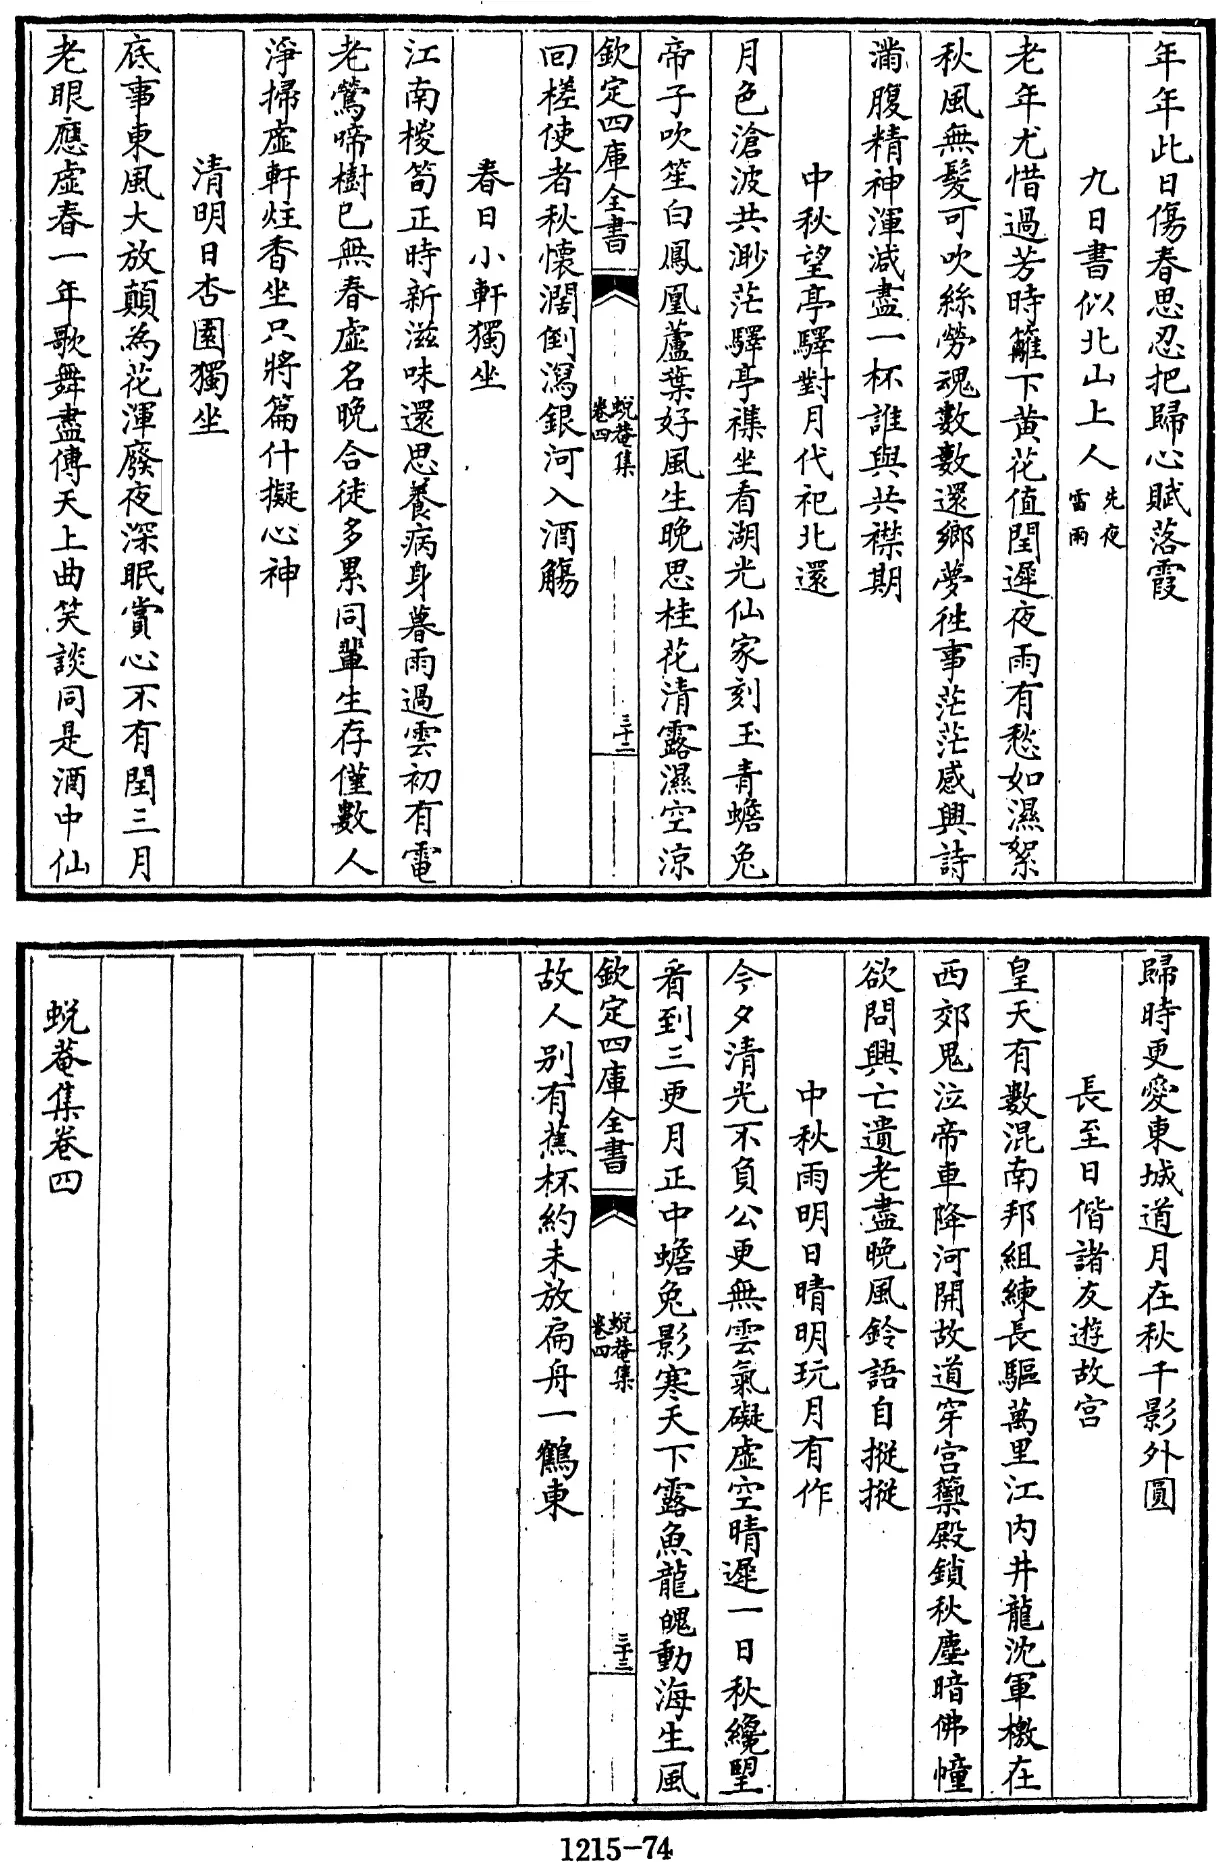 年年此日傷春思忍把歸心賦落霞
九日書似北山上人先夜雷雨
老年尤惜過芳時籬下黄花值閏遲夜雨有愁如濕絮
秋風無髮可吹絲勞魂數數還鄉夢徃事茫茫感興詩
滿腹精神渾减盡一杯誰與共襟期
中秋望亭驛對月代祀北還
月色滄波共渺茫驛亭襍坐看湖光仙家刻玉青蟾兔
帝子吹笙白鳳凰蘆葉好風生晩思桂花清露濕空凉
欽定四庫全書
蛻菴集
卷四
三十二
回槎使者秋懷濶倒瀉銀河入酒觴
春日小軒獨坐
江南㯶筍正時新滋味還思養病身暮雨過雲初有電
老鶯啼樹已無春虛名晩合徒多累同輩生存僅數人
淨掃虛軒炷香坐只將篇什擬心神
清明日杏園獨坐
底事東風大放顛為花渾廢夜深眠賞心不有閏三月
老眼應虛春一年歌舞盡傳天上曲笑談同是酒中仙
歸時更愛東城道月在秋千影外圓
長至日偕諸友遊故宫
皇天有數混南邦組練長驅萬里江内井龍沈軍檄在
西郊鬼泣帝車降河開故道穿宫籞殿鎖秋塵暗佛幢
欲問興亡遺老盡晩風鈴語自摐摐
中秋雨明日晴明玩月有作
今夕清光不負公更無雲氣礙虛空晴遲一日秋纔望
看到三更月正中蟾兔影寒天下露魚龍魄動海生風
欽定四庫全書
蛻菴集
卷四
三十三
故人别有蕉杯約未放扁舟一鶴東
蛻菴集卷四
1215-74